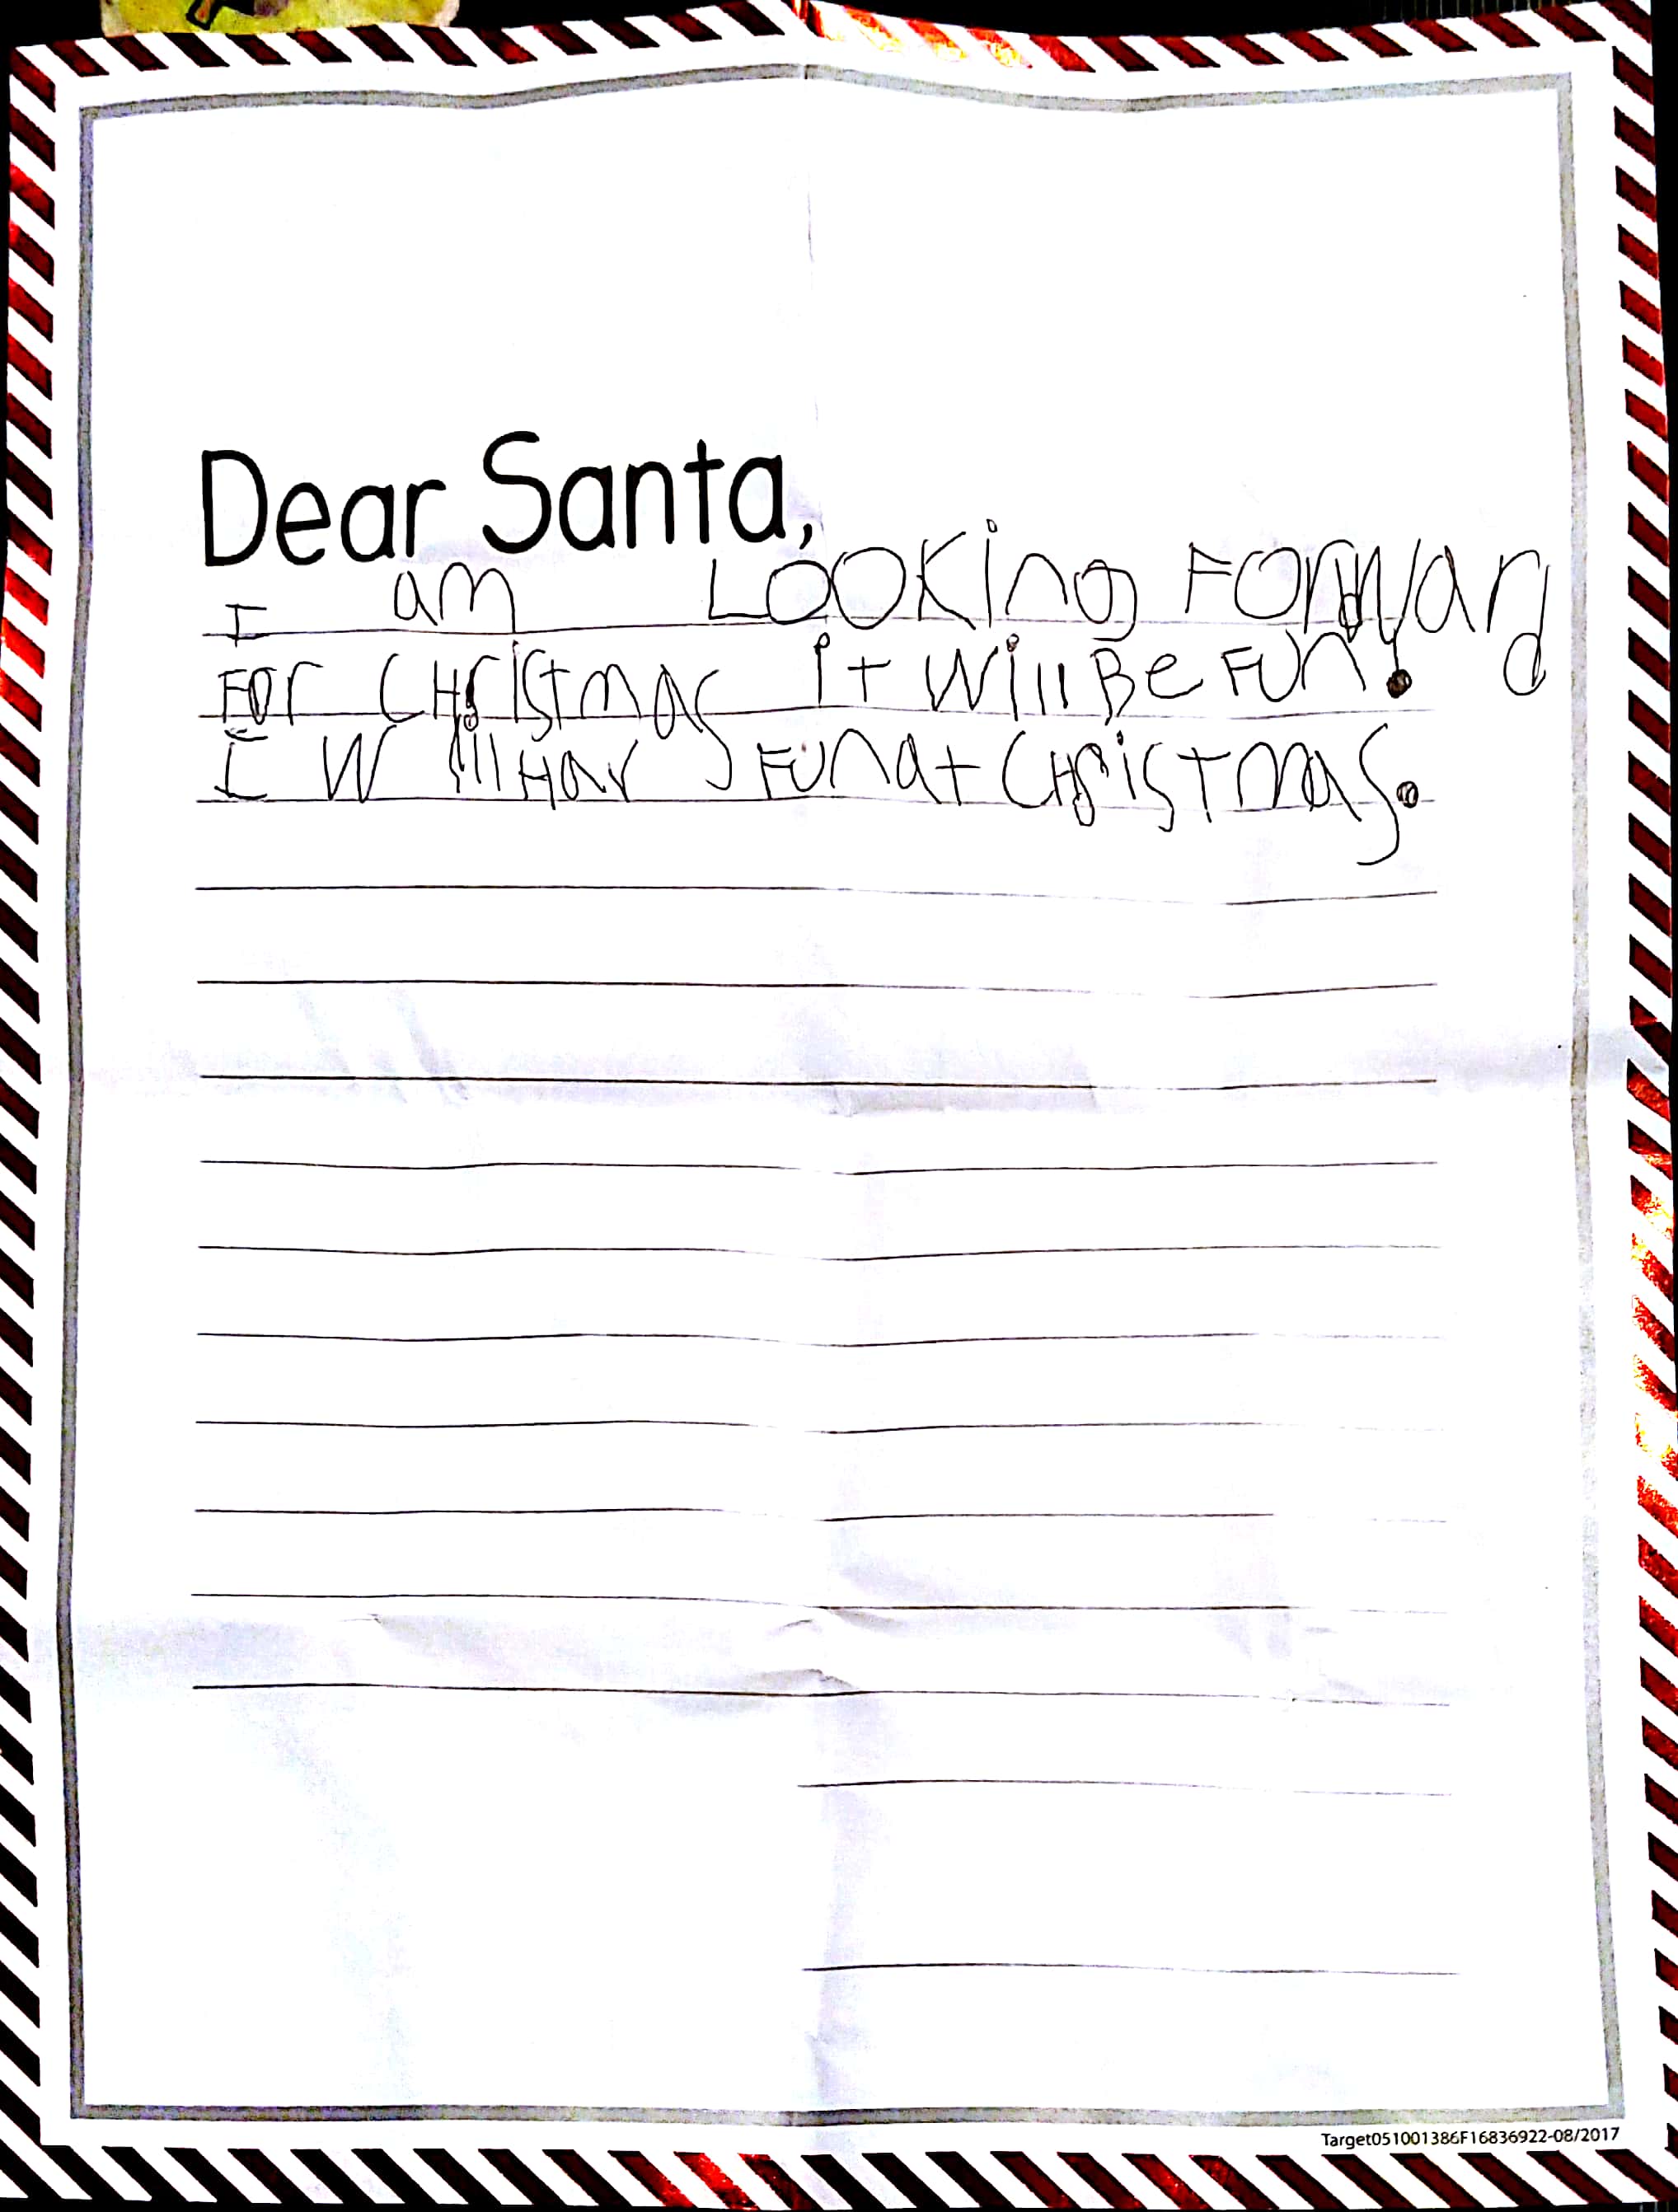 Dear Santa,
I am LOOKing FOrward
FOr CHristmas it will Be FUn!
I Will Hav FUn at CHristmas.
Target051001386F16836922-08/2017